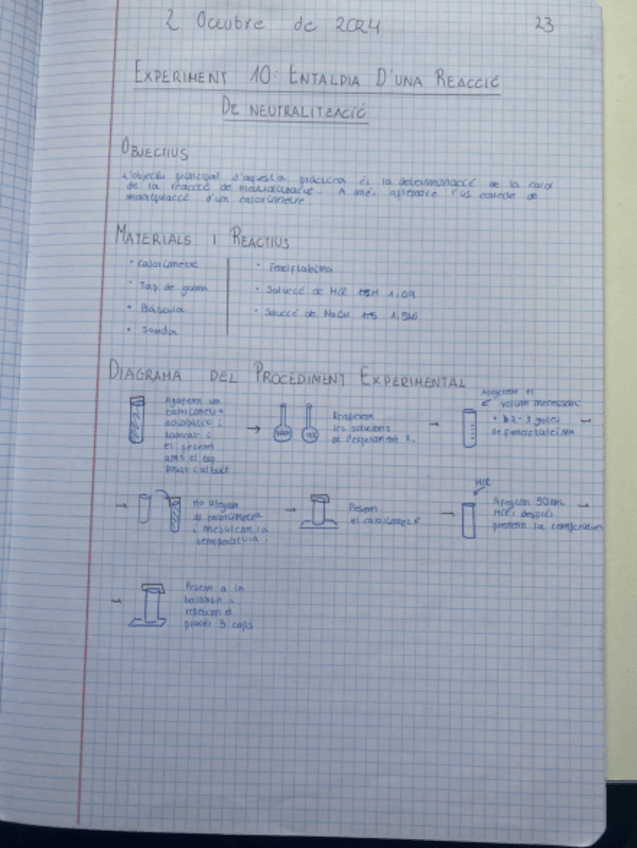 2 Octubre de 2024 23
EXPERIMENT 10: ENTALPIA D'UNA REACCIÓ
DE NEUTRALITZACIÓ
OBJECTIUS
L'objectiu principal d'aquesta pràctica és la determinació de la calor
de la reacció de neutralització. A més, aprendre l'ús correcte de
manipulació d'un calorímetre
MATERIALS I REACTIUS
• Calorímetre
• Tap de goma
• Bàscula
• Sonda
• Fenolftaleïna
• Solució de HCl 1,04
• Solució de NaOH
DIAGRAMA DEL PROCEDIMENT EXPERIMENTAL
Agafem un
calorímetre
adiabàtic i
i
el pesem
amb el tap
posat
→
NaOH
HCl
les solucions
de l'experiment
→
Afegim el
volum necessari
+ 2-3 gotes
de fenolftaleïna
→
→
Ho
al calorímetre
i mesurem la
temperatura.
→
Pesem
el calorímetre
→
HCl
Afegim 50 mL
HCl i després
prenem la temperatura
→
→
Pesem a la
balança i
repetim el
procés 3 cops